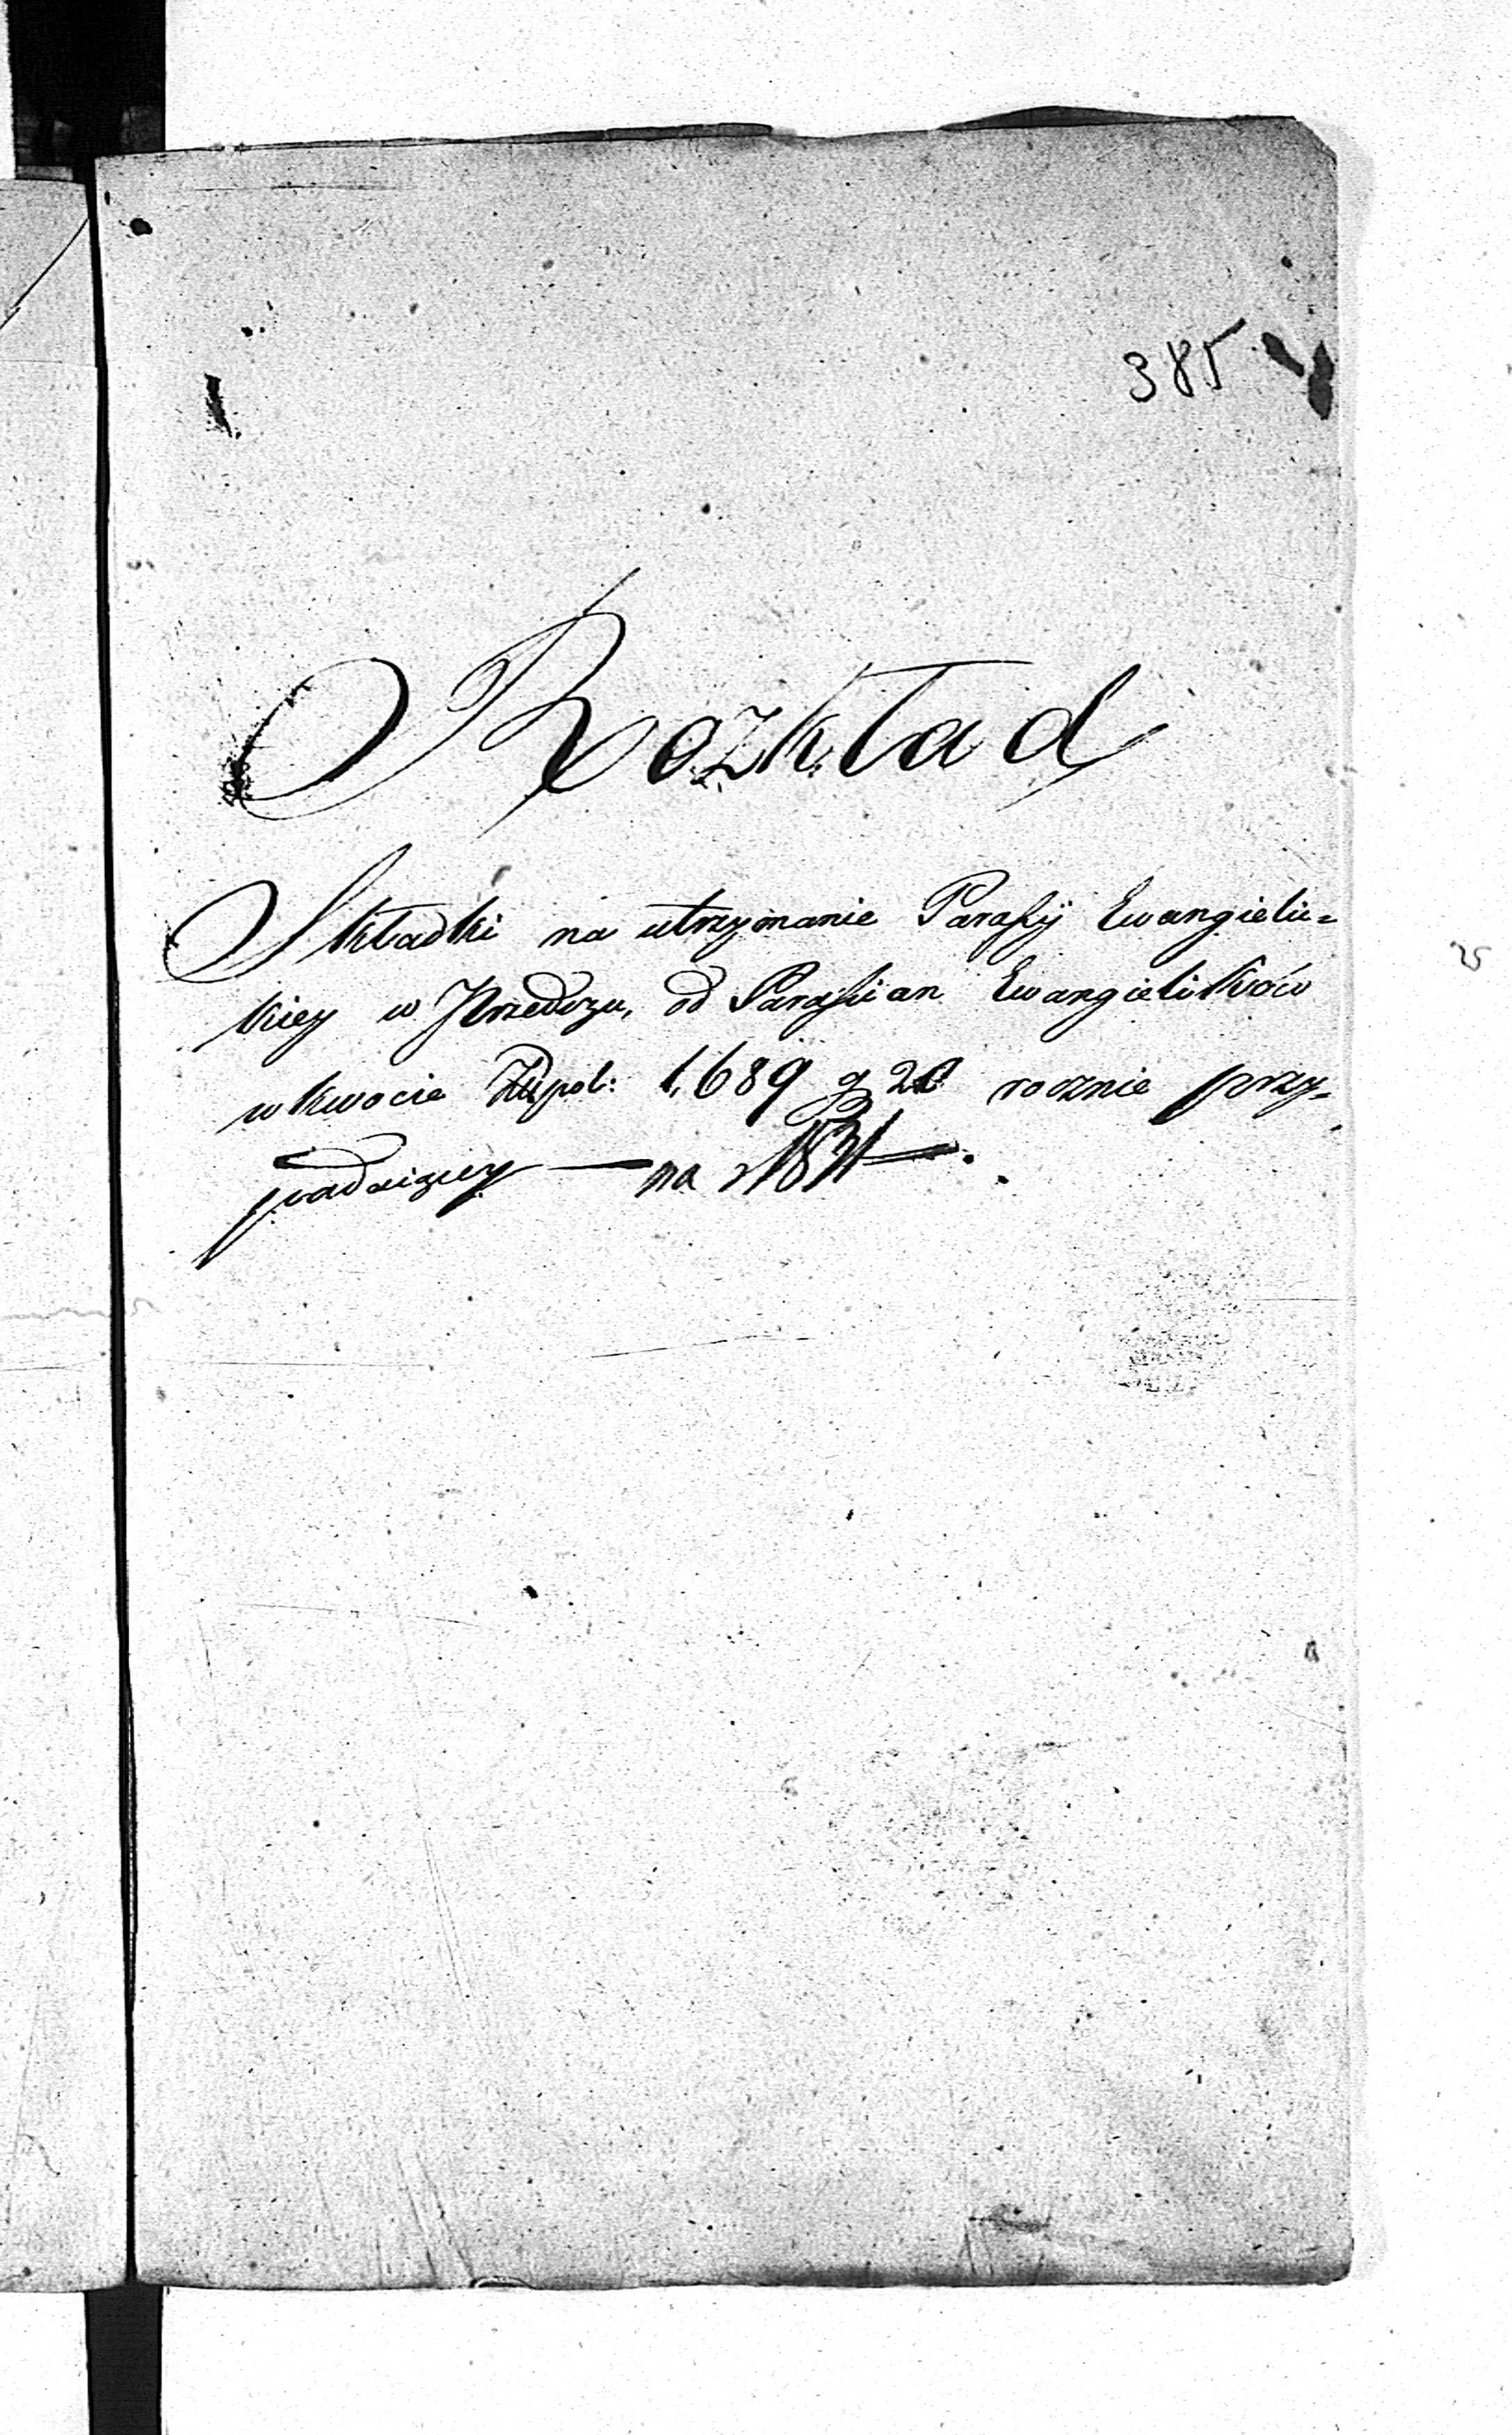 385
Rozkład
Składki na utrzymanie Parafij Ewangielic=
kiey w Przedczu, od Parafian Ewangelików
w kwocie Złłpol: 1,689 g 20 rocznie przy=
padaiącey — na r 1831 —.
25